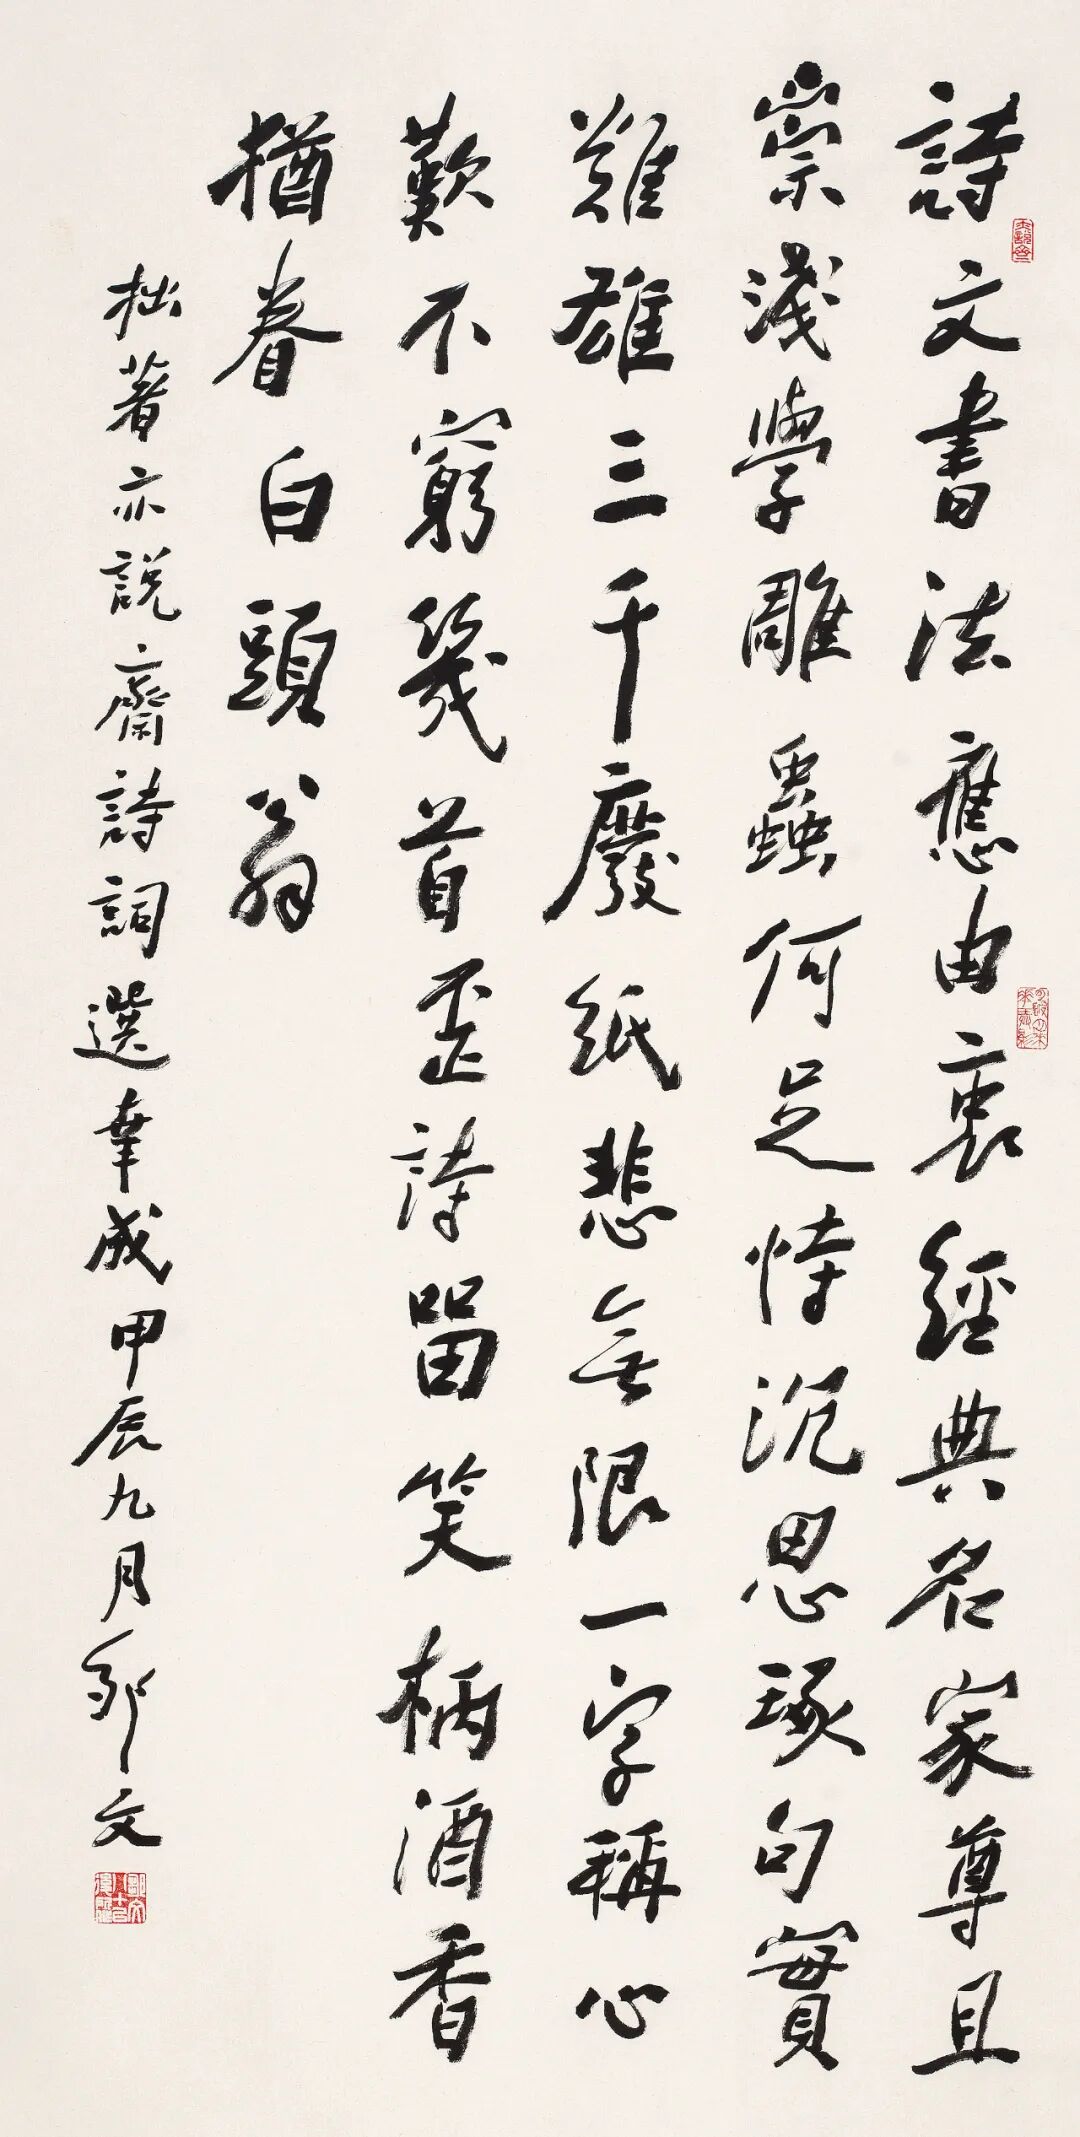 詩文書法應由衷經典名家尊且
崇淺學雕蟲何足恃沉思琢句實
難雄三千廢紙悲無限一字稱心
歎不窮幾首歪詩留笑柄酒香
猶眷白頭翁
拙著亦説齋詩詞選華成甲辰九月鄒文